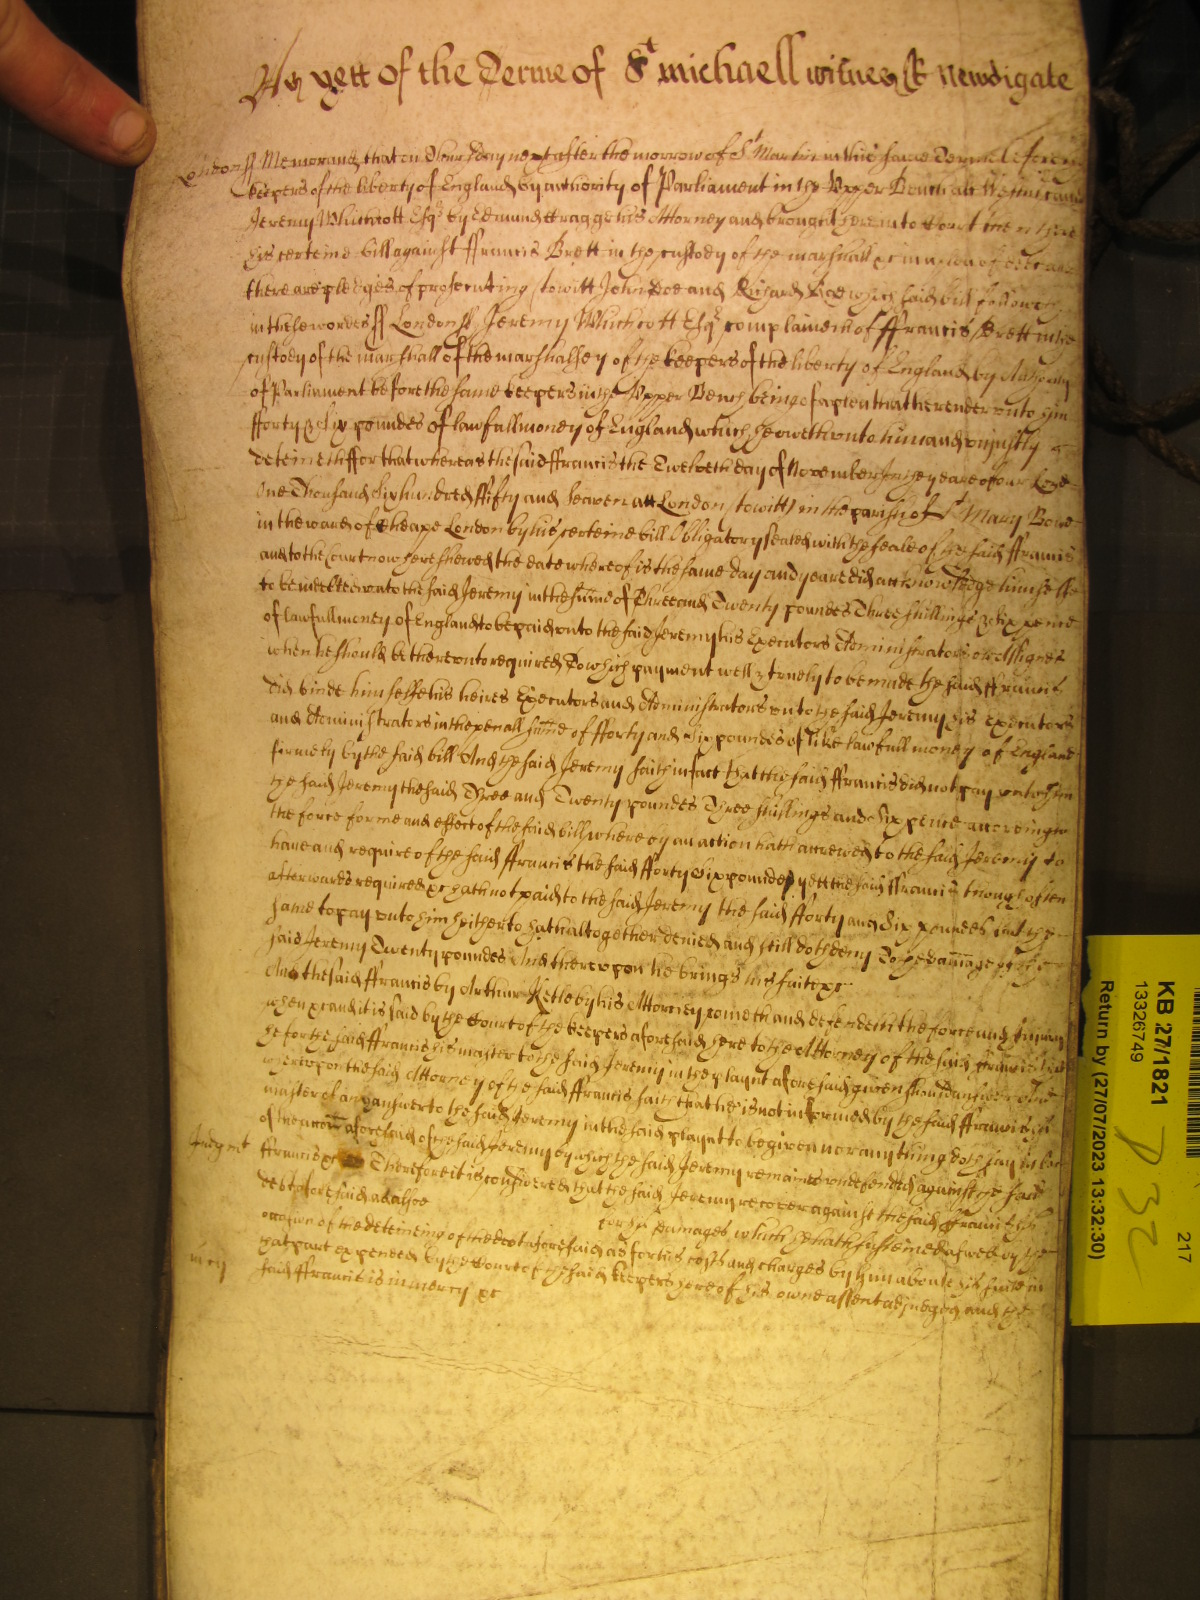 As yett of the Terme of St Michaell witnes R Newdigate
London ss Memorand that on Thursday next after the morrow of St Martin in this same Terme before
keepers of the liberty of England by authority of Parliament in the Upper Bench att Westm came
Jeremy Whichcott Esqr by Edmund Wragge his Attorney and brought here into Court then there
his certeine bill against ffrancis Brett in the custody of the marshall &c in a plea of debt and
there are pledges of prosecuting to witt John Doe and Richard Roe which said bill followeth
in these wordes ss London ss Jeremy Whichcott Esqr complaineth of ffrancis Brett in the
custody of the marshall of the marshalsey of the keepers of the liberty of England by Authority
of Parliament before the same keepers in the Upper Bench being of a plea that he render unto him
fforty & six poundes of lawfull money of England which he oweth unto him and uniustly
deteineth ffor that whereas the said ffrancis the Twelveth day of November In the yeare of our Lord
One Thousand Six hundred ffifty and Seaven att London to witt in the parish of St Mary Bowe
in the ward of Cheape London by his certeine bill Obligatory sealed with the seale of the said ffrancis
and to the Court now here shewed the date whereof is the same day and yeare did acknowledge himselfe
to be indebted unto the said Jeremy in the sume of Three and Twenty poundes Three shillings & six pence
of lawfull money of England to be paid unto the said Jeremy his Executors Administrators or Assignes
when he should be thereunto required To which payment well & truely to be made the said ffrancis
did binde himselfe his heires Executors and Administrators unto the said Jeremy his executors
and Administrators in the penall sume of fforty and six poundes of like lawfull money of England
firmely by the said bill And the said Jeremy saith in fact that the said ffrancis did not pay unto him
the said Jeremy the said Three and Twenty poundes Three shillings and six pence according to
the force forme and effect of the said bill whereby an action hath accrewed to the said Jeremy to
have and require of the said ffrancis the said fforty six poundes yett the said ffrancis though often
afterwards required &c hath not paid to the said Jeremy the said fforty and Six poundes but the
same to pay unto him hitherto hath altogether denied and still doth deny To the damage of the
said Jeremy Twenty poundes And thereupon he brings his suite &c
And the said ffrancis by Arthur Ketleby his Attorney cometh and defendeth the force and Iniury
when &c and it is said by the Court of the keepers aforesaid here to the Attorney of the said ffrancis that
he for the said ffrancis his master to the said Jeremy in the playnt aforesaid given should answer And
whereupon the said Attorney of the said ffrancis saith that he is not informed by the said ffrancis his
master of any answer to the said Jeremy in the said playnt to be given nor any thing doth say in barr
of the accon aforesaid of the said Jeremy by which the said Jeremy remaines undefended against the said
Judgmt ffrancis &c Therefore it is considered that the said Jeremy recover against the said ffrancis his
debt aforesaid as alsoe for his Damages which he hath susteined aswell by the
occasion of the deteineing of the debt aforesaid as for his costs and charges by him about his suite in
that part expended by the Court of the said keepers here of his owne assent adjudged And the
mcy said ffrancis is in mercy &c
KB 27/1821
13326749
Return by (27/07/2023 13:32:30)
217
D 32